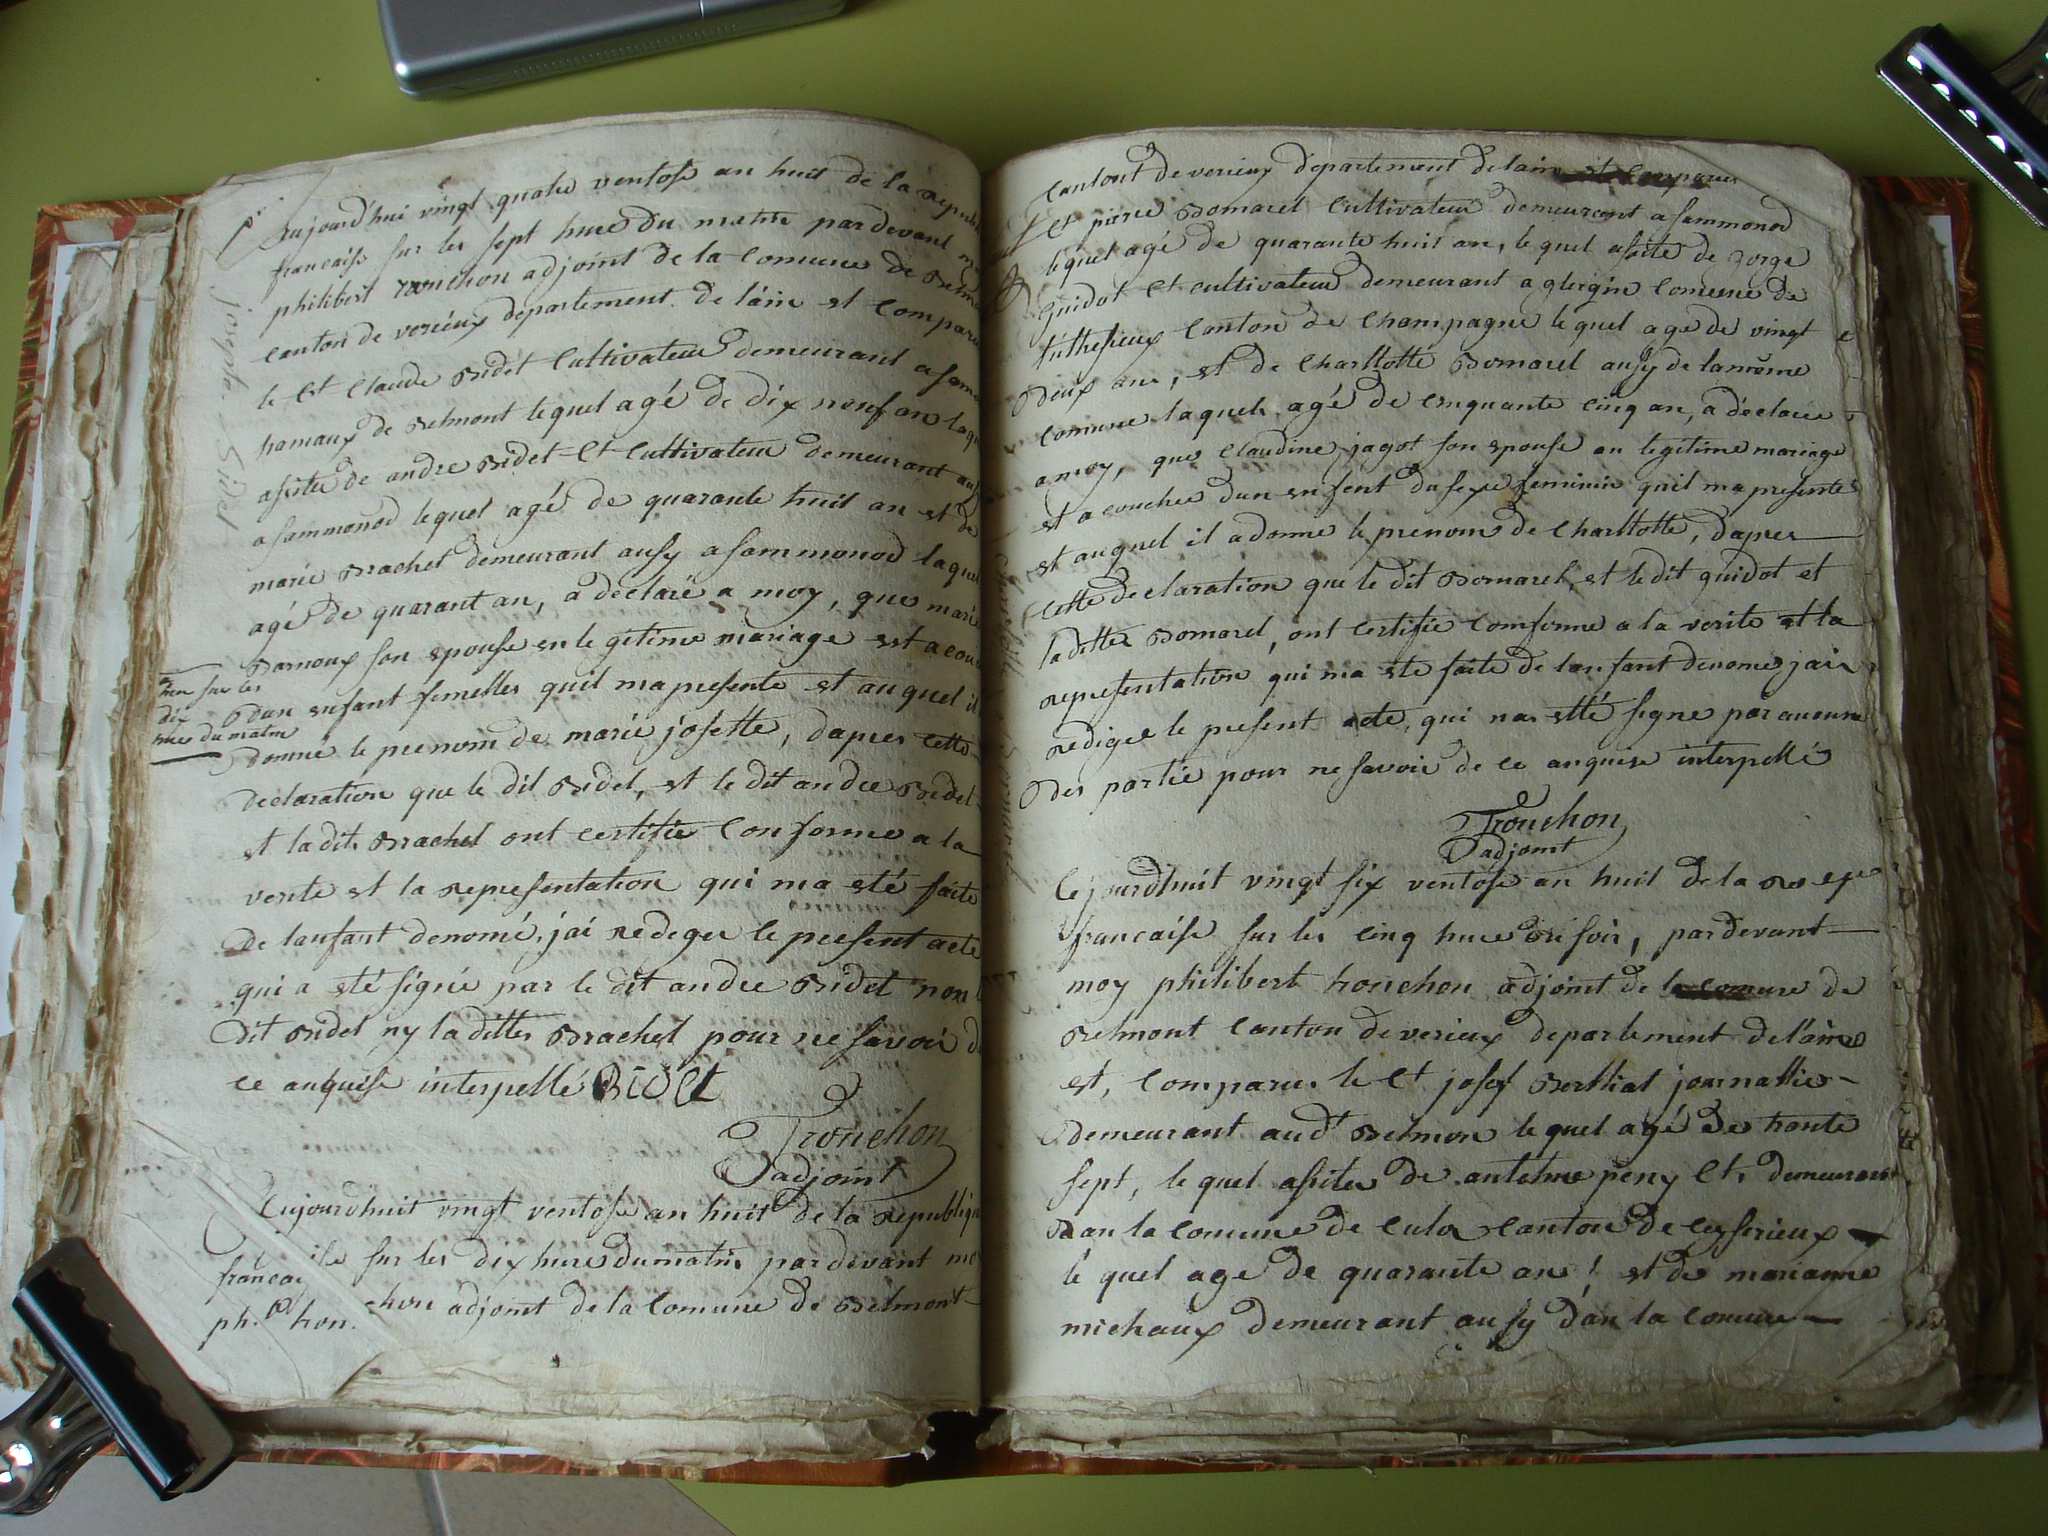 aujourd'hui vingt quatre ventose an huit de la
francaise sur les sept hure du matin par devant
philibert trouchon adjoint de la Comune de
canton de verieux departement de l'ain est compare
le Ct Claude Bidet Cultivateur demeurant a
hamaux de Belmont lequel agé de dix neuf an
asiste de andre Bidet Ct Cultivateur demeurant
a sammonod lequel agé de quarante huit an et de
marie Brachet demeurant ausy a sammonod laquel
agé de quarant an, a declaré a moy, que marie
Barnoux son epouse en legitime mariage est a
hure sur les
dix
hure du matin
dun enfant femelles quil ma presente et auquel il
donné le prenom de marie josette, dapres cette
declaration que le dit Bidet, et le dit andre Bidet
et la dite Brachet ont certifie Conforme a la
verite et la representation qui ma eté faite
de lanfant denomé, jai rediger le present acte
qui a eté signé par le dit andre Bidet non
dit Bidet ny la dittes Brachet pour ne savoir
ce anquise interpellé BIDEt
Trouchon
adjoint
aujourdhuit vingt ventose an huit de la republiqu
francai se sur les dix hure du matin par devant
ph. chon adjoint de la Comune de Belmont
joseple Bidet
Cantont de verieux departement de lain est Comparu
Ct pierre Bomarel Cultivateur demeurant a sammonod
lequel agé de quarante huit an, le quel asite de gorge
guidot Ct cultivateur demeurant a glirgin Comune de
luthesieux Canton de Champagne le quel age de vingt
deux an, et de Charllotte Bomarel ausy de la même
Comune laquele agé de cinquante cinq an, a déclaree
a moy, que Claudine jagot son epouse an legitime mariage
est a couchee dun enfent du sexe feminin quil ma presente
et auquel il a donne le prenom de Charllotte, dapres
cette declaration que le dit Bomarel, et le dit guidot et
la dittes Bomarel, ont certifie comforme a la verite et la
representation qui ma ete faite de lanfant denome jais
rediger le present acte, qui nas etté signe par aucune
des partie pour ne savoir de ce anquise interpellé
Trouchon
adjoint
Cejourdhuit vingt six ventose an huit de la
francaise sur les cinq hure du soir, par devant
moy philibert trouchon adjoint de la comure de
Belmont Canton de verieux departement de l'ain
est, Comparu le Ct josef Berthiat journallier
demeurant aud. Belmon le quel agé de trente
sept, le quel asites de antelme peny Ct. demeurant
dan la comune de culo canton de ceyserieux
le quel age de quarante an! et de marianne
michaux demeurant ausy dan la comune